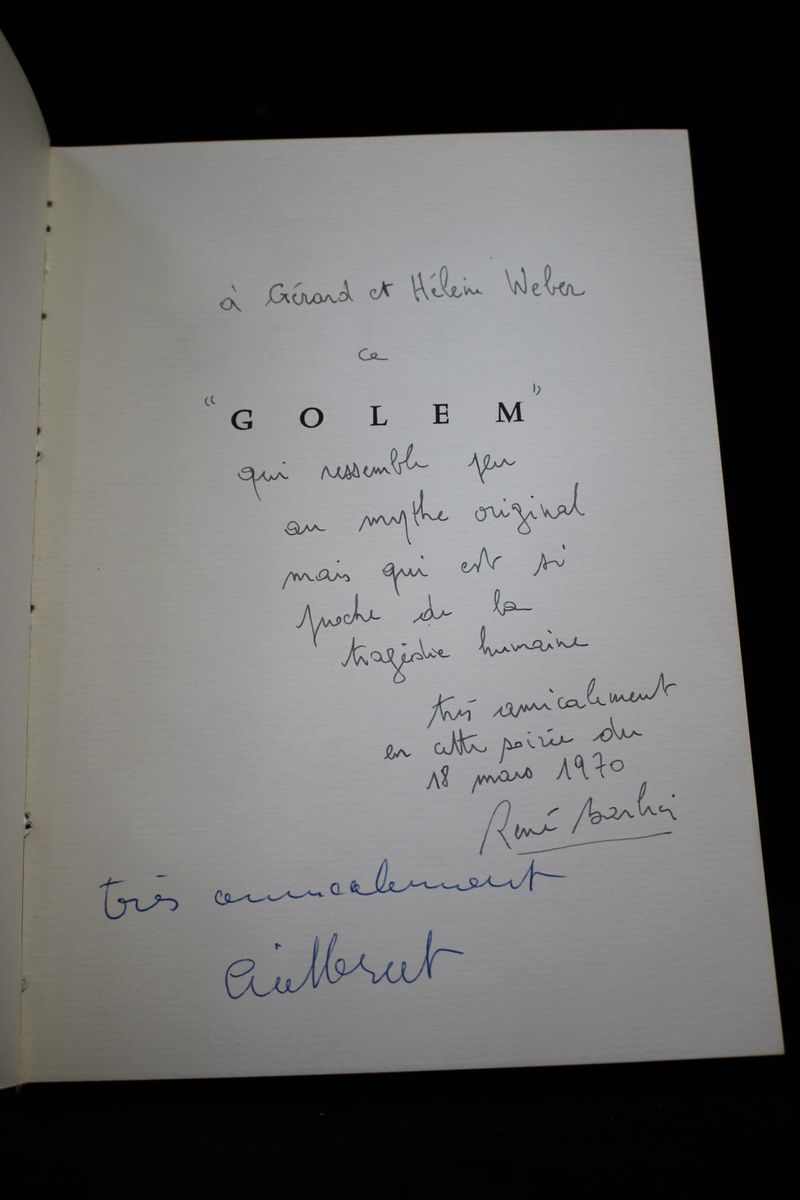 à Gérard et Hélène Weber
ce
"GOLEM"
qui ressemble peu
au mythe original
mais qui est si
proche de la
tragédie humaine
très amicalement
en cette soirée du
18 mars 1970
René
très amicalement